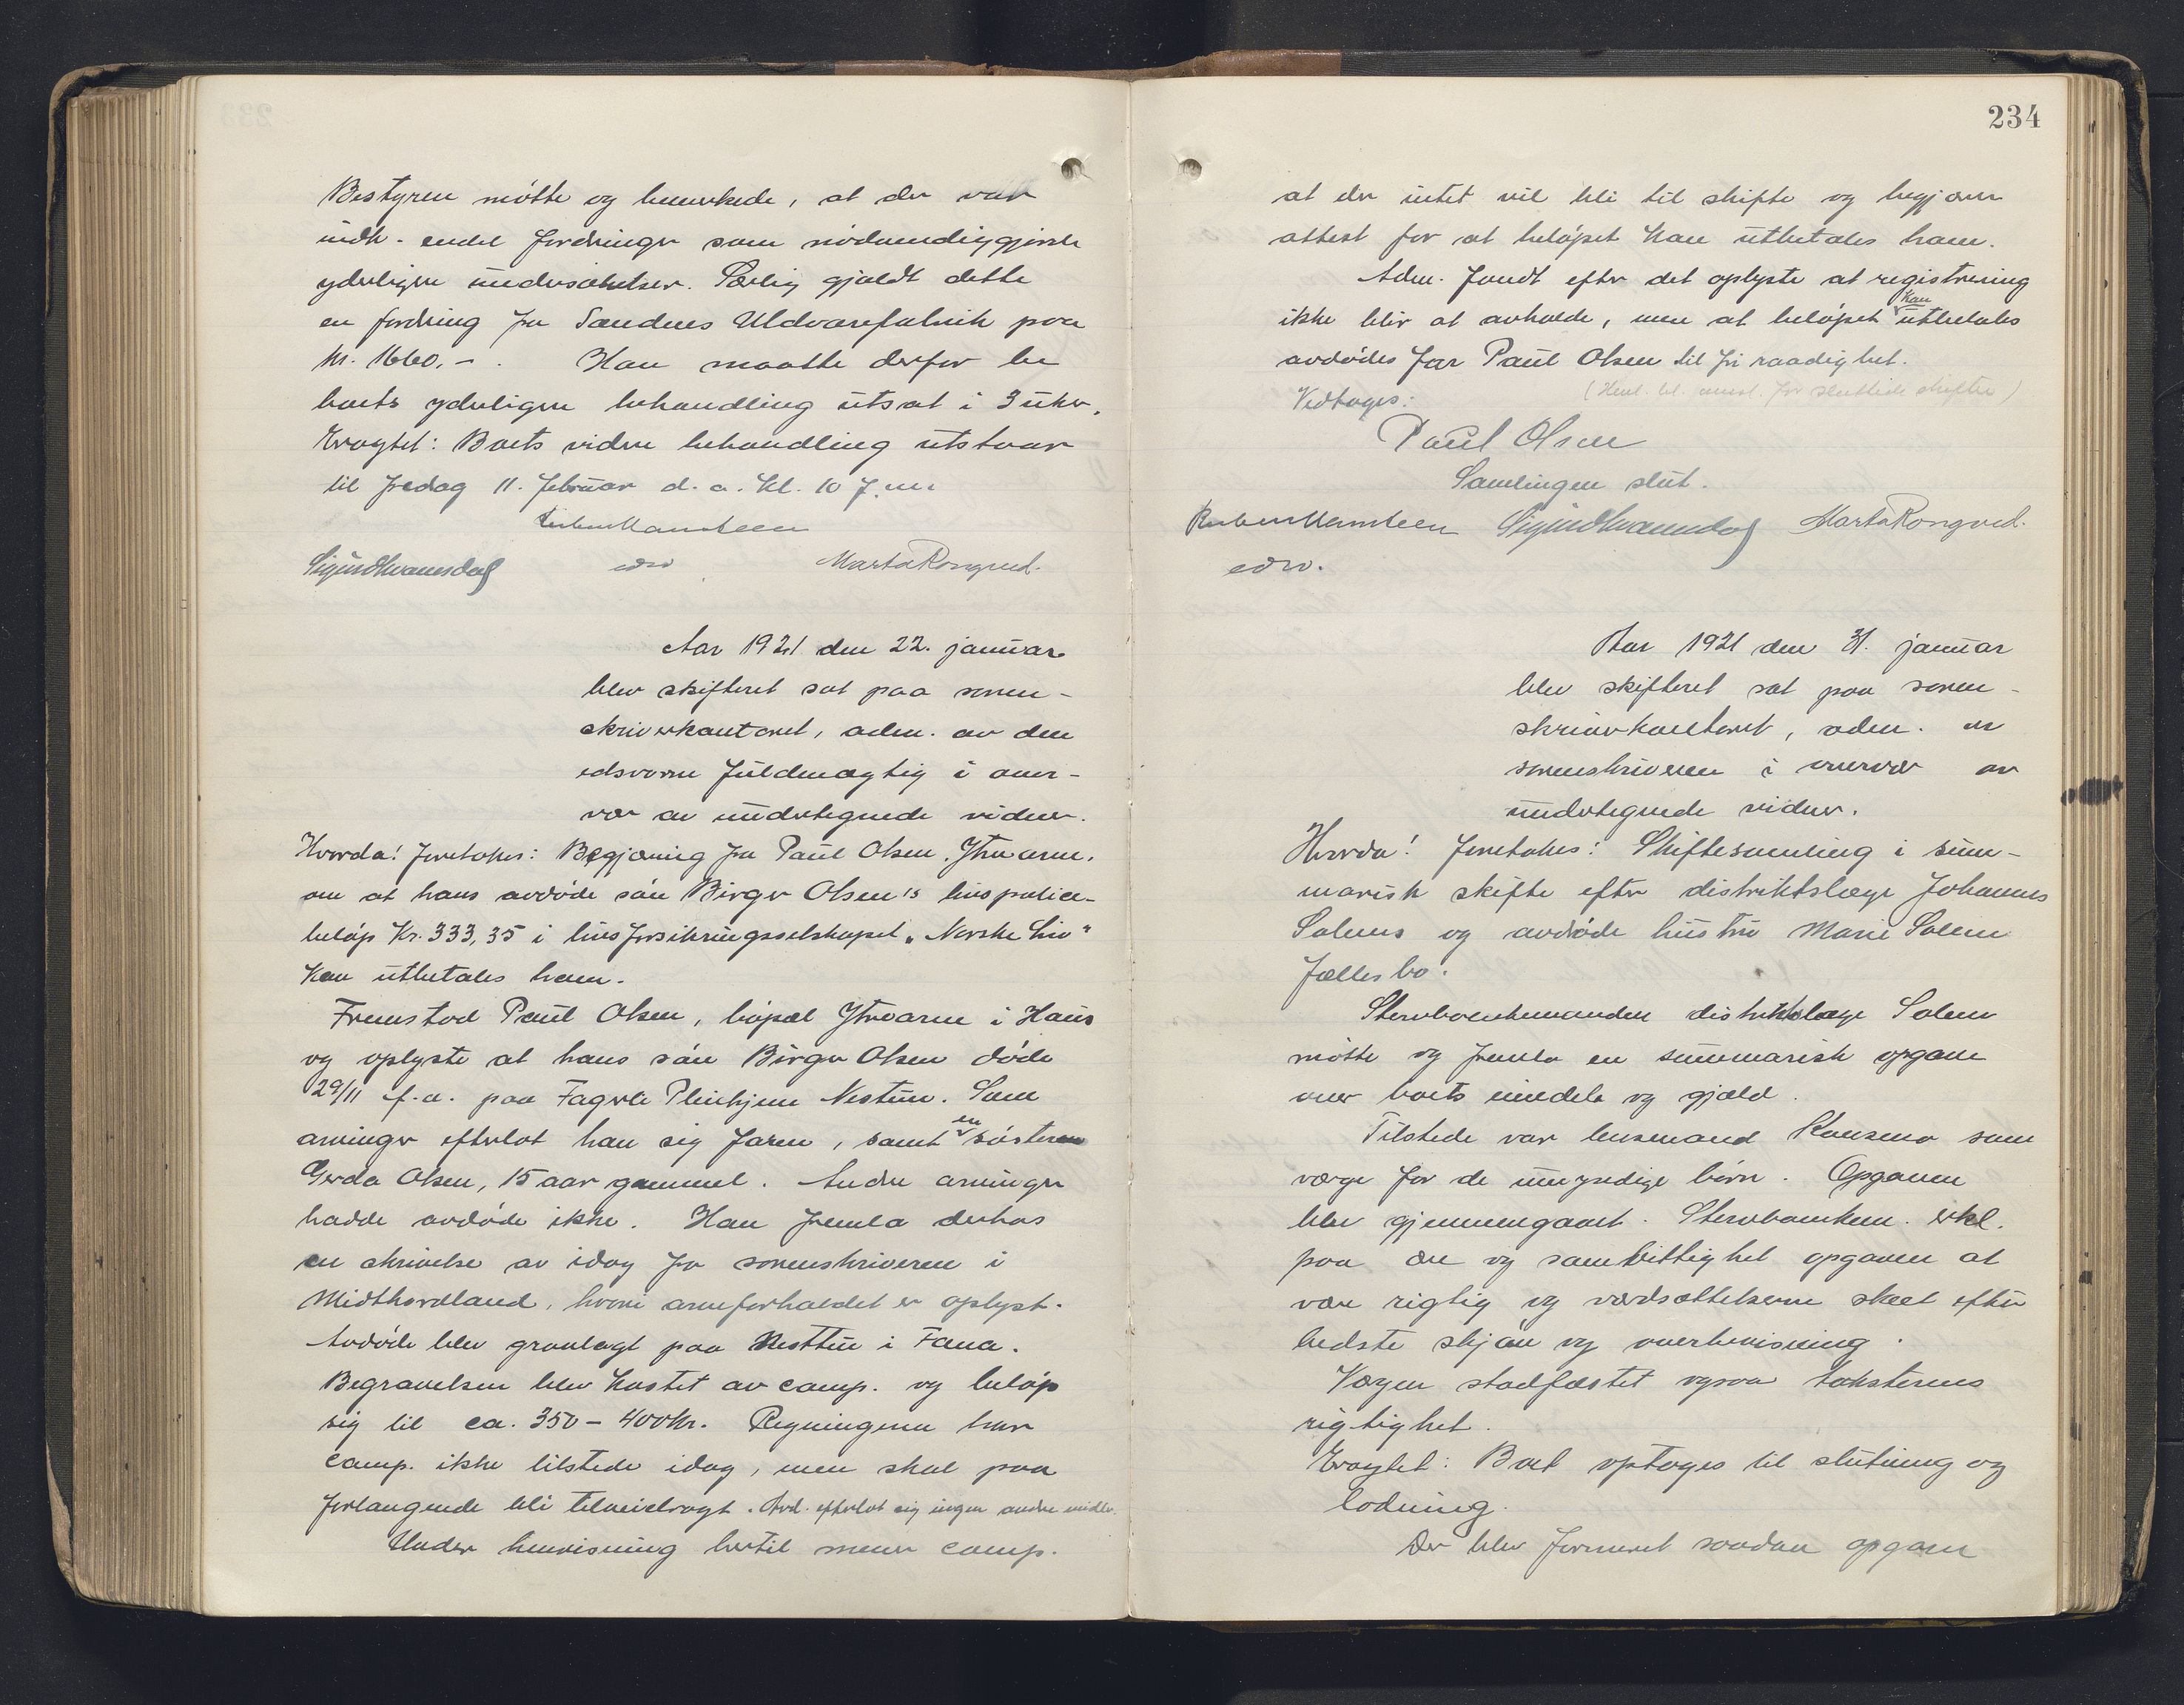 Bestyren møtte og bemerkede, at der var
indk. endel fordringer som nødvendiggjorde
yderligere undersøkelser. Særlig gjaldt dette
en fordring fra Sandnes Uldvarefabrik paa
kr. 1660.-. Han maatte derfor be
boets yderligere behandling utsat i 3 uker.
Eragtet: Boets videre behandling utstaar
til fredag 11. februar d. a. kl. 10 f.m.
Sigurd Svanesdal edsv Marta Rongved.
Aar 1921 den 22. januar
blev skifteret sat paa soren-
skriverkontoret, adm. av den
edsvorne fuldmægtig i over-
vær av undertegnede vidner.
Hvorda! foretokes: Begjæring fra Paul Olsen, Ytrearne,
om at hans avdøde søn Birger Olsen's livspolice-
beløp Kr. 333,35 i livsforsikringsselskapet "Norske Liv"
kan utbetales ham.
Fremstod Paul Olsen, bopæl Ytrearne i Haus
og oplyste at hans søn Birger Olsen døde
29/11 f.a. paa Fagerli Pleiehjem Nestun. Som
arvinger efterlot han sig faren, samt en søster
Gerda Olsen, 15 aar gammel. Andre arvinger
hadde avdøde ikke. Han fremla derhos
en skrivelse av idag fra sorenskriveren i
Midthordland, hvori arveforholdet er oplyst.
Avdøde blev gravlagt paa Nesttun i Fana.
Begravelsen blev kostet av comp. og beløp
sig til ca. 350 - 400 kr. Regningerne har
comp. ikke tilstede idag, men skal paa
forlangende bli tilveiebragt. Avd. efterlot sig ingen andre midler.
Under henvisning hertil mener comp.
234
at der intet vil bli til skifte og begjærer
attest for at beløpet kan utbetales ham.
Adm. fandt efter det oplyste at registrering
ikke blir at avholde, men at beløpet kan utbetales
avdødes far Paul Olsen til fri raadighet.
Vedtages:
Paul Olsen
Samlingen slut.
Sigurd Svanesdal Marta Rongved.
edsv.
Aar 1921 den 31. januar
blev skifteret sat paa soren-
skriverkontoret, adm. av
sorenskriveren i overvær av
undertegnede vidner.
Hvorda! foretokes: Skiftesamling i sum-
marisk skifte efter distriktslæge Johannes
Solems og avdøde hustru Marie Solem
fællesbo.
Stervboenkemanden distriktslæge Solem
møtte og fremla en summarisk opgave
over boets eiendele og gjæld.
Tilstede var lensmand som
værge for de umyndige børn. Opgaven
blev gjennemgaaet. Stervboenkem. erkl.
paa ære og samvittighet opgaven at
være rigtig og værdsættelserne skeet efter
bedste skjøn og overbevisning.
Værgen stadfæstet ogsaa taksternes
rigtighet.
Eragtet: Boet optages til slutning og
lodning.
Der blev formeret saadan opgave